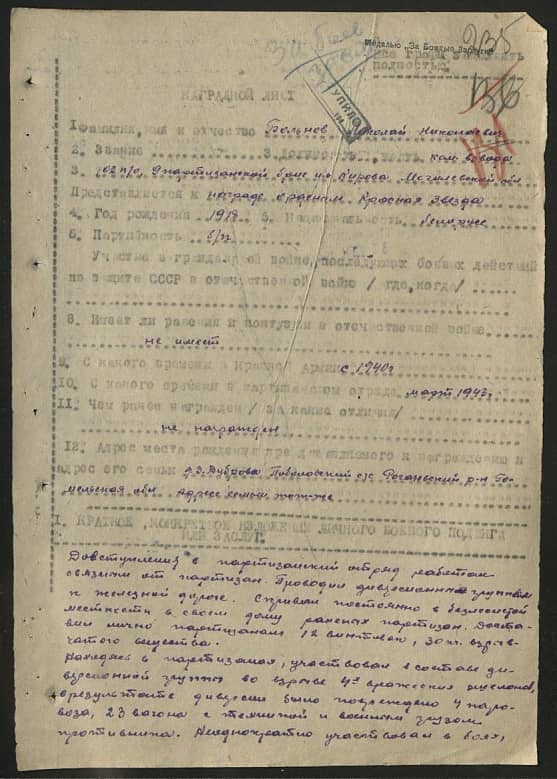 З.И. Боев
235
Медалью „За Боевые Заслуги"
полностью
НАГРАДНОЙ ЛИСТ
1 Фамилия, имя и отчество Николай Николаевич
2. Звание 3. Должность, часть ком взвода
3. 102 п/о, партизанский Кирова Могилевской обл
Представляется к награде орденом Красная Звезда
4. Год рождения 1919 5. Национальность белорус
6. Партийность б/п
Участие в гражданской войне, последующих боевых действий
по защите СССР в отечественной войне / где, когда/
8. Имеет ли ранения и контузии в отечественной войне
не имеет
9. С какого времени в Красной Армии с 1940 г
10. С какого времени в партизанском отряде март 1943 г
11. Чем ранее награжден / за какие отличия/
не награжден
12. Адрес места рождения представляемого к награждению и
адрес его семьи Дуброва с/с р-н Го-
мельская обл Адрес семьи
I. КРАТКОЕ, КОНКРЕТНОЕ ИЗЛОЖЕНИЕ ЛИЧНОГО БОЕВОГО ПОДВИГА
ИЛИ ЗАСЛУГ.
До вступления в партизанский отряд работал
связным от партизан. Проводил диверсионные группы
к железной дороге. Скрывал постоянно в безлесной
местности в своем дому раненых партизан. Доста-
вил лично партизанам 12 винтовок, 30 кг. взрыв-
чатого вещества.
Находясь в партизанах, участвовал в составе ди-
версионной группы во взрыве 4х вражеских эшелонов,
в результате диверсии было повреждено 4 паро-
воза, 23 вагона с техникой и военным грузом
противника. Неоднократно участвовал в боях,